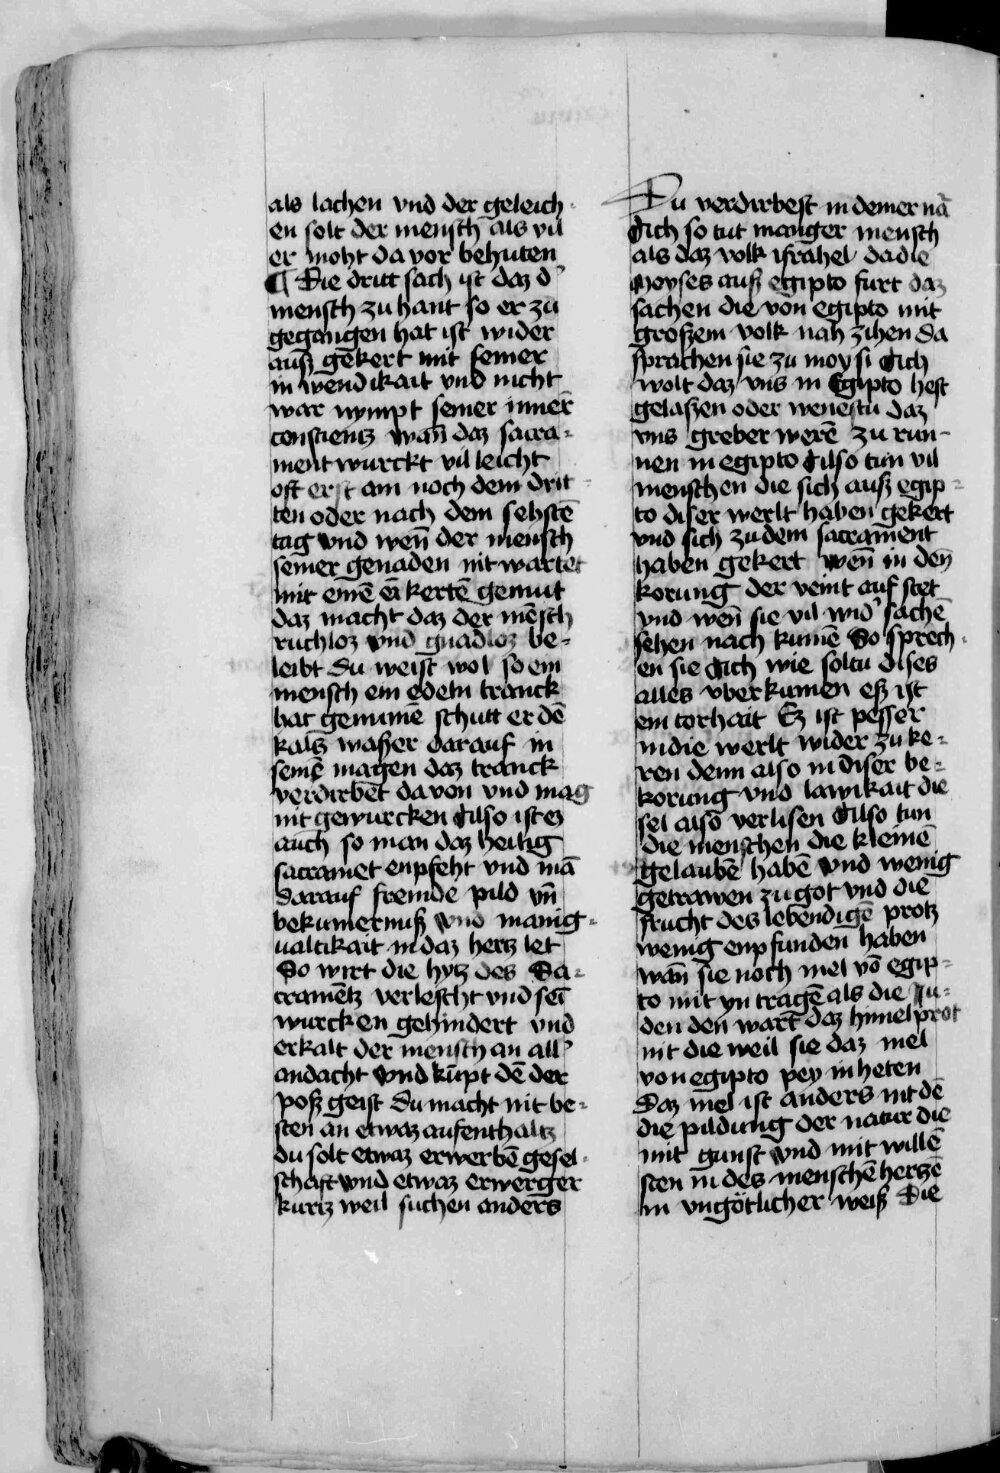 als lachen vnd der geleich-
en solt der mensch als vil
er moht da vor behuten
¶ Die dritt sach ist daz d'
mensch zu hant so er zu
gegangen hat ist wider
auß gekert mit seiner
in wendikait vnd nicht
war nympt seiner inner̄
conscientz wan̄ daz sacra-
ment wurckt villeicht
oft erst am noch dem drit-
ten oder nach dem sehstē
tag vnd wen̄ der mensch
seiner genaden nit wartet
mit einē ei kertē gemut
daz macht daz der mēsch
ruchloz vnd gnadloz be-
leibt du weist wol so ein
mensch ein edeln tranck
hat genumē schutt er dē
kaltz waßer darauf in
seinē magen daz tranck
verdirbet da von vnd mag
nit gewurcken Also ist ez
auch so man daz heilig
sacramet enpfeht vnd mā
darauf fremde pild vn̄
bekumernuß vnd manig-
ualtikait in daz hertz let
So wirt die hytz des Sa-
cramētz verlescht vnd sei
wurcken gehindert vnd
erkalt der mensch an all'
andacht vnd kūpt dē der
poß geist du macht nit be-
sten an etwaz aufenthaltz
du solt etwaz erwerbē gesel-
schaft vnd etwaz erwerger
kurtz weil suchen anders
Du verdirbest in deiner na
Sich so tut manger mensch
als daz volk israhel da die
Moyses auß egipto furt daz
sachen die von egipto mit
großem volk nah zihen da
sprachen sie zu moysi Sich
wolt daz vns in Egipto hest
gelaßen oder wenestu daz
vns greber werē zu run-
nen in egipto Also tun vil
menschen die sich auß egip-
to diser werlt haben gekert
vnd sich zu dem sacrament
haben gekert wen̄ in den
korung der veint auf stet
vnd wen̄ sie vil wid' sachē
sehen nach kumē So sprech-
en sie Sich wie soltu dises
alles vberkumen eß ist
ein torhait Ez ist pesser
in die werlt wider zu ke-
ren denn also in diser be-
korung vnd lawikait die
sel also verlisen Also tun
die menschen die kleinē
gelaubē habē vnd wenig
getrawen zu got vnd die
frucht des lebendigē protz
wenig enpfunden haben
wan̄ sie noch mel vō egip-
to mit yn tragē als die Ju-
den den wart daz himelprot
nit die weil sie daz mel
von egipto pey in heten
Daz mel ist anders nit dē
die pildung der natur die
mit gunst vnd mit willē
sten in des menschē hertzē
in vngötlicher weiß Die